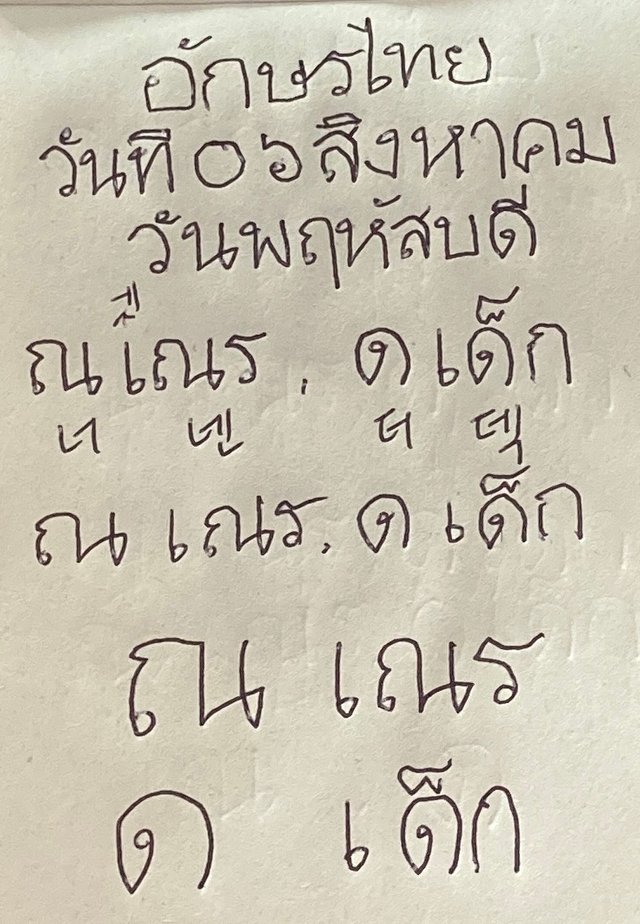 อักษรไทย
วันที ๐๖ สิงหาคม
วันพฤหัสบดี
เด็ก
ณ เณร. ด เด็ก
ณ เณร
ด เด็ก